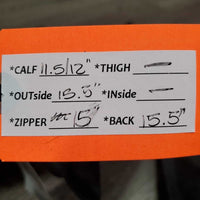 *CALF 11.5/12" *THIGH —
*OUTside 15.5" *INside —
*ZIPPER 15" *BACK 15.5"